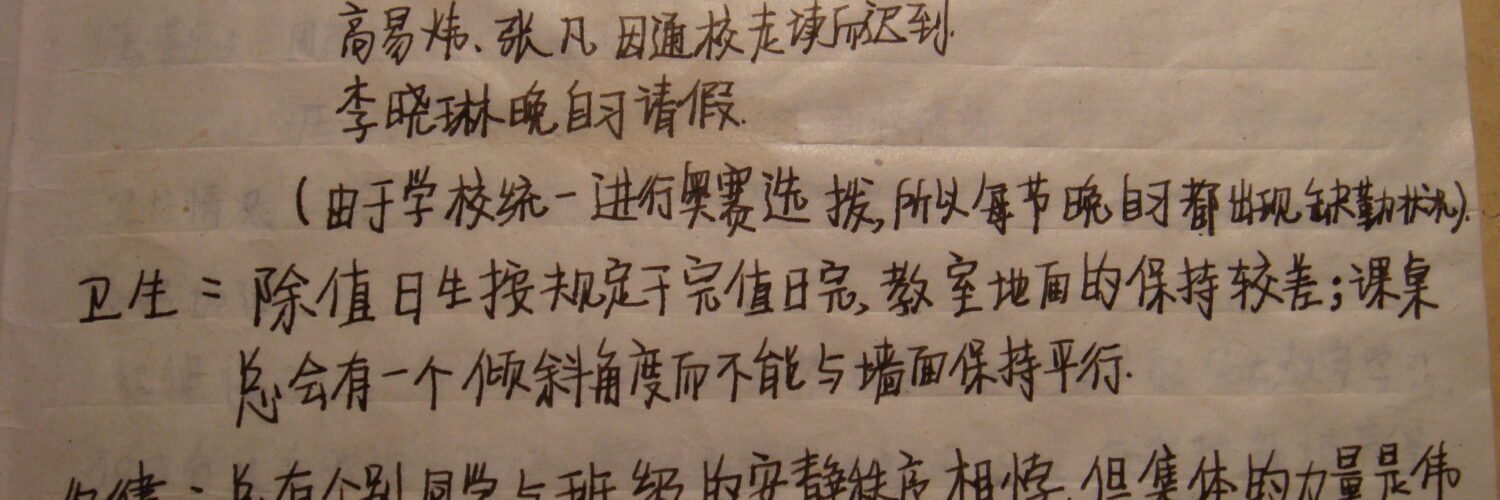 高易炜、张凡因通校走读而迟到.
李晓琳晚自习请假.
(由于学校统一进行奥赛选拔,所以每节晚自习都出现缺勤状况).
卫生: 除值日生按规定干完值日完、教室地面的保持较差;课桌
总会有一个倾斜角度而不能与墙面保持平行.
纪律: 总有个别同学与班级的安静秩序相悖,但集体的力量是伟